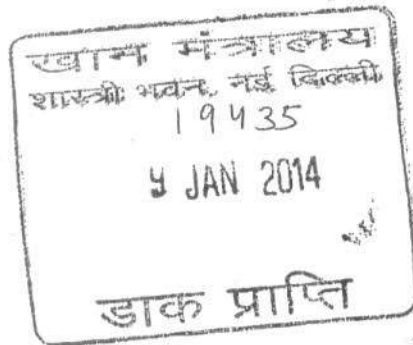 खान मंत्रालय
शास्त्री भवन, नई दिल्ली
19435
9 JAN 2014
डाक प्राप्ति